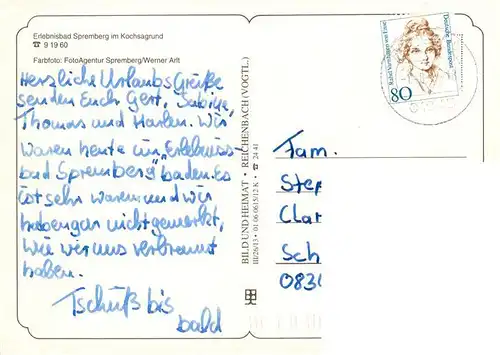 Erlebnisbad Spremberg im Kochsagrund
☎ 9 19 60
Farbfoto: FotoAgentur Spremberg/Werner Arlt
Herzliche Urlaubs Grüße
senden Euch Gert, Sabine,
Thomas und Harlen. Wir
waren heute im „Erlebniss-
bad Spremberg" baden. Es
ist sehr warm und wir
haben gar nicht gemerkt,
wie wir uns verbrannt
haben.
Tschüß bis
bald
BILD UND HEIMAT • REICHENBACH (VOGTL.)
III/26/13 • 01 06 0615/12 K • ☎ 24 41
Deutsche Bundespost
Rahel Varnhagen von Ense
80
Fam.
Step
Clar
Sch
0831